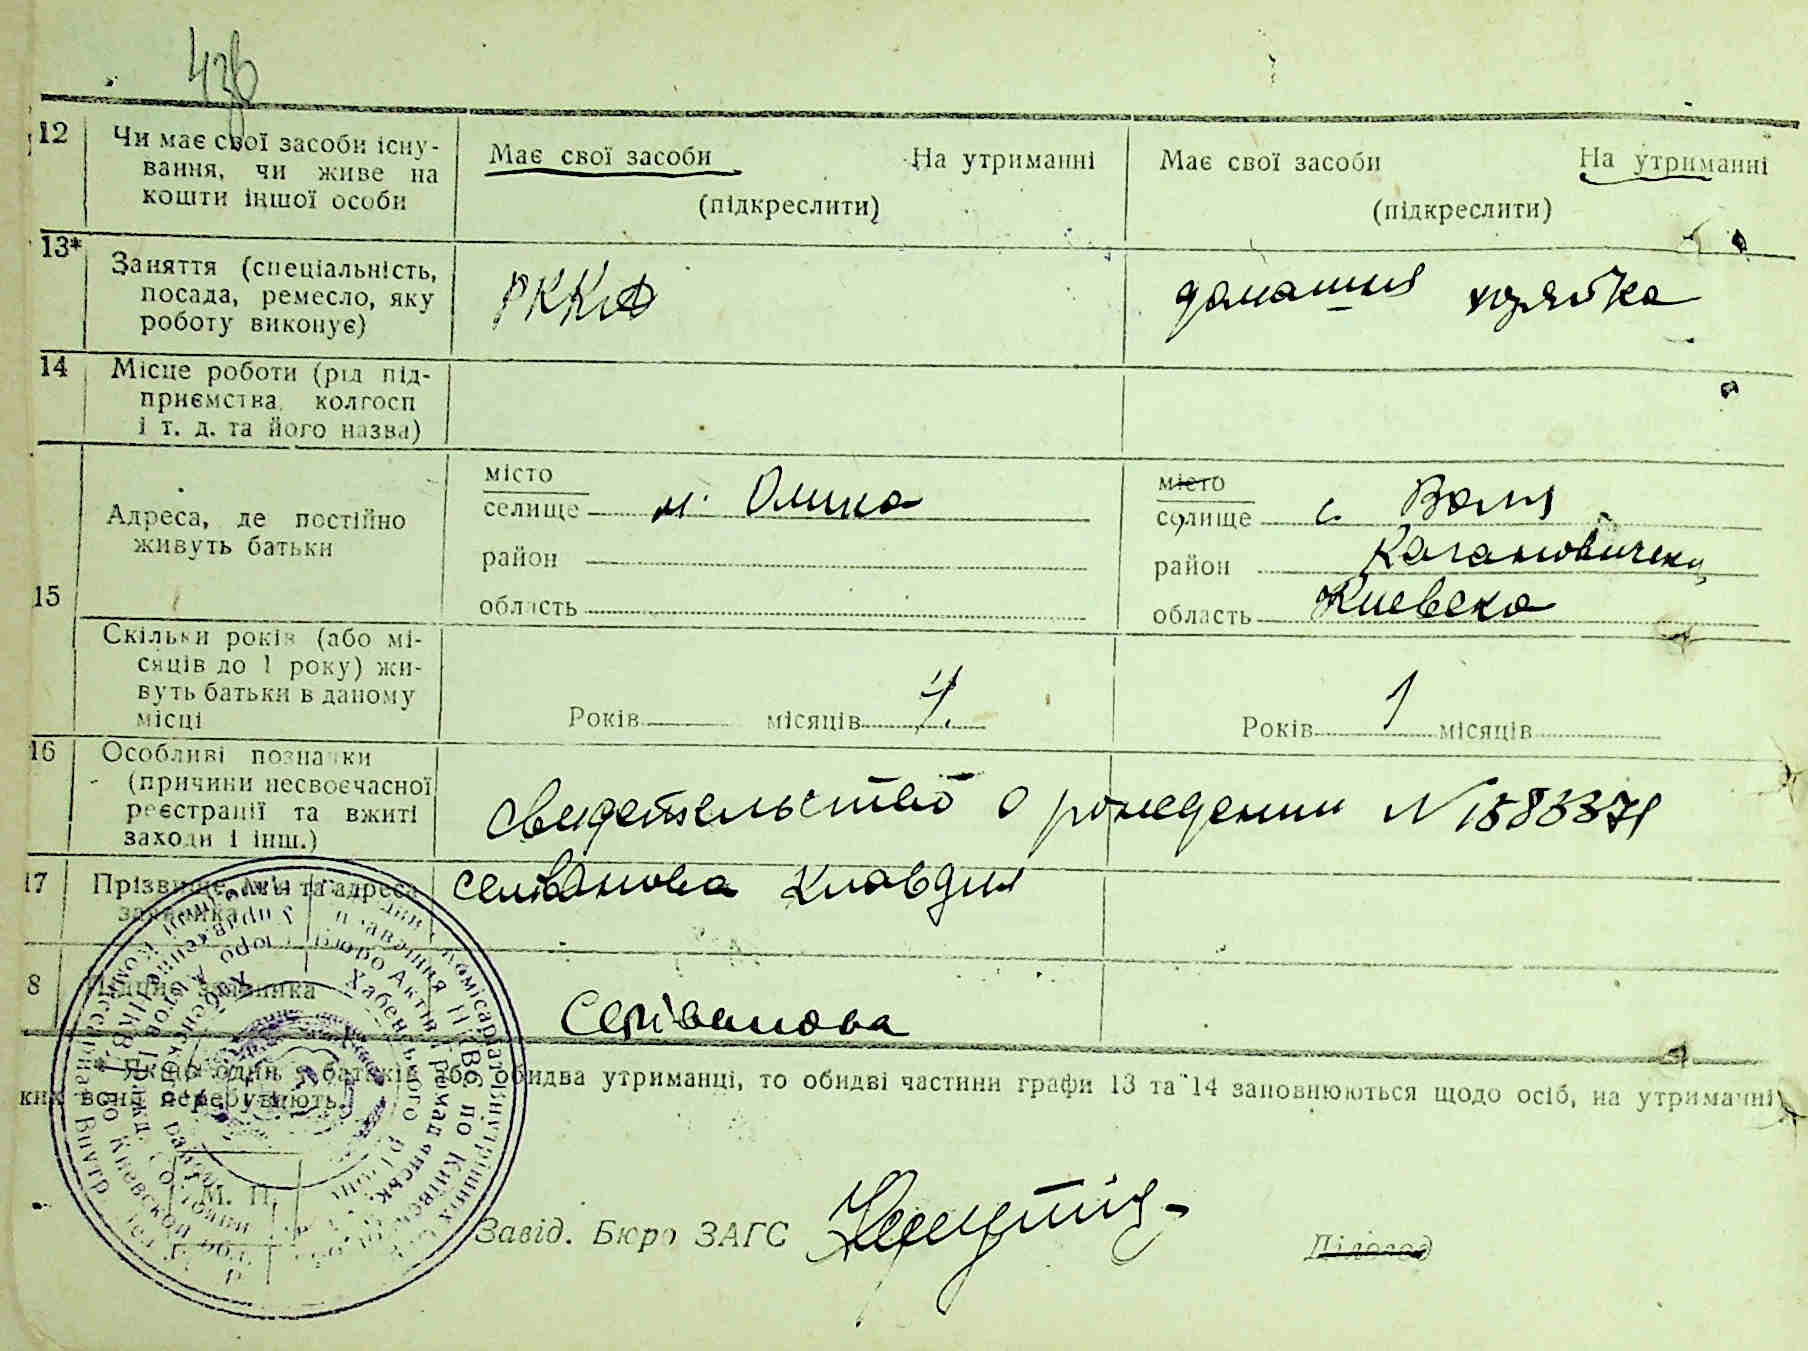 12 Чи має свої засоби існу-
вання, чи живе на
кошти іншої особи
Має свої засоби На утриманні
(підкреслити)
Має свої засоби На утриманні
(підкреслити)
13* Заняття (спеціальність,
посада, ремесло, яку
роботу виконує)
РККА
домашня хозяйка
14 Місце роботи (рід під-
приємства, колгосп
і т. д. та його назва)
15
Адреса, де постійно
живуть батьки
місто
селище м. Олика
район
область
місто
селище с. Воля
район Кагановический
область Киевска
Скільки років (або мі-
сяців до 1 року) жи-
вуть батьки в даному
місці
Років місяців 4.
Років 1 місяців
16 Особливі позначки
(причини несвоєчасної
реєстрації та вжиті
заходи і інш.)
свидетельство о рождении N
17 Прізвище, ім'я та адреса
заявника
Селіванова Клавдия
8 Підпис заявника
Селіванова
* Якщо один з батьків або обидва утриманці, то обидві частини графи 13 та 14 заповнюються щодо осіб, на утриманні
ких вони перебувають.
М. П.
Завід. Бюро ЗАГС
Діловод